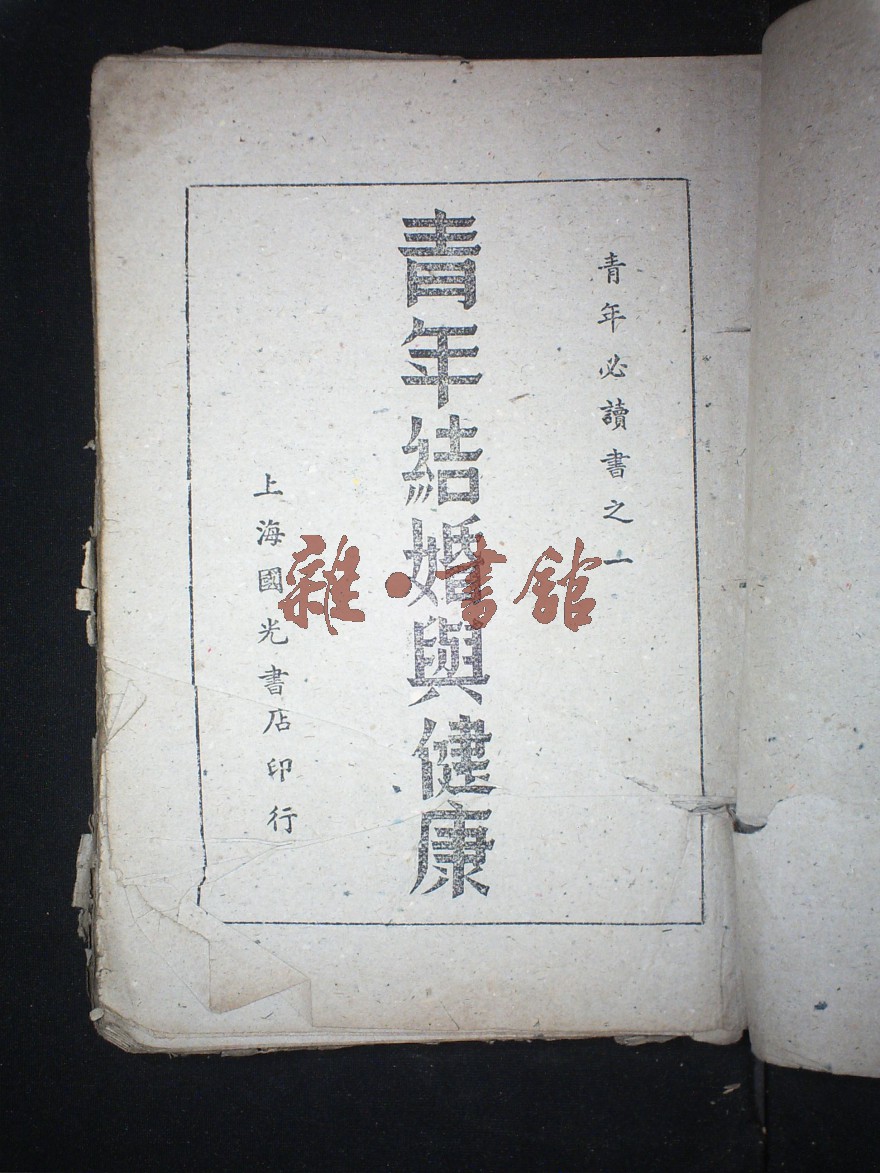 青年必讀書之一
青年結婚與健康
上海國光書店印行
雜·書館